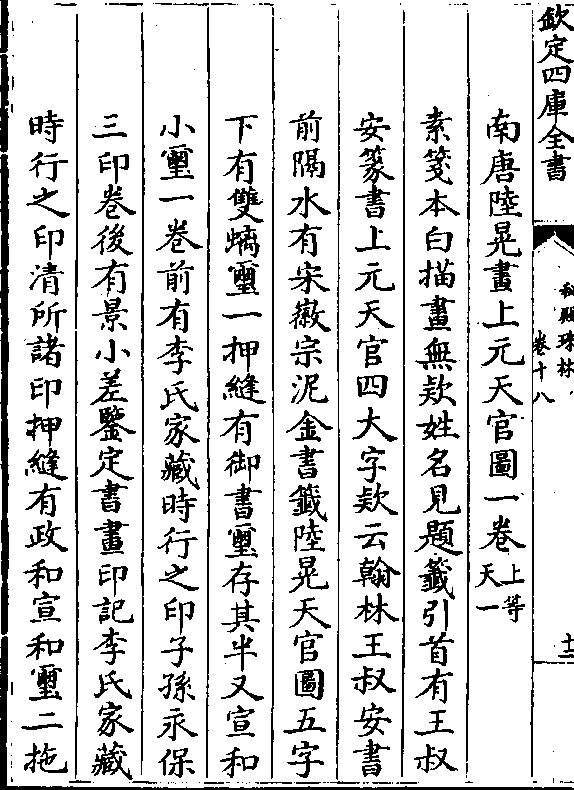 欽定四庫全書
秘殿珠林
卷十八
十三
南唐陸晃畫上元天官圖一卷上等天一
素箋本白描畫無欵姓名見題籖引首有王叔
安篆書上元天官四大字欵云翰林王叔安書
前隔水有宋徽宗泥金書籖陸晃天官圖五字
下有雙螭璽一押縫有御書璽存其半又宣和
小璽一卷前有李氏家藏時行之印子孫永保
三印卷後有景小差鑒定書畫印記李氏家藏
時行之印清所諸印押縫有政和宣和璽二拖